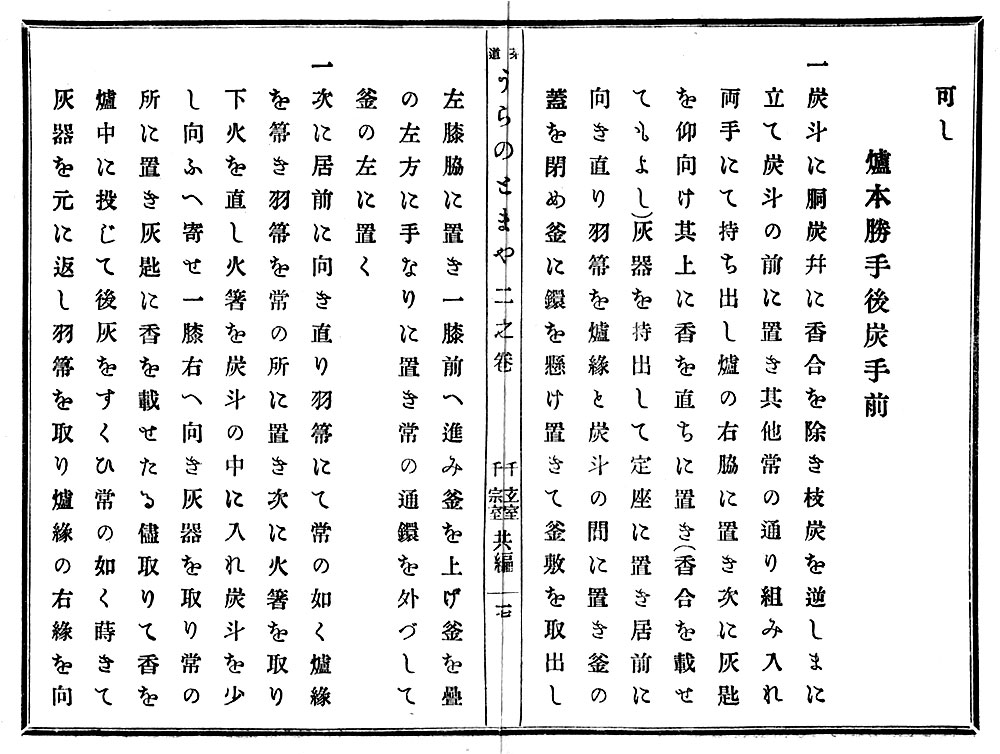 可し
爐本勝手後炭手前
一炭斗に胴炭幷に香合を除き枝炭を逆しまに
立て炭斗の前に置き其他常の通り組み入れ
両手にて持ち出し爐の右脇に置き次に灰匙
を仰向け其上に香を直ちに置き(香合を載せ
てもよし)灰器を持出して定座に置き居前に
向き直り羽箒を爐緣と炭斗の間に置き釜の
蓋を閉め釜に鐶を懸け置きて釜敷を取出し
茶道
うらのとまや二之卷
千玄室
千宗室
共編
一七
左膝脇に置き一膝前へ進み釜を上げ釜を疊
の左方に手なりに置き常の通鐶を外づして
釜の左に置く
一次に居前に向き直り羽箒にて常の如く爐緣
を箒き羽箒を常の所に置き次に火箸を取り
下火を直し火箸を炭斗の中に入れ炭斗を少
し向ふへ寄せ一膝右へ向き灰器を取り常の
所に置き灰匙に香を載せたる儘取りて香を
爐中に投じて後灰をすくひ常の如く蒔きて
灰器を元に返し羽箒を取り爐緣の右緣を向